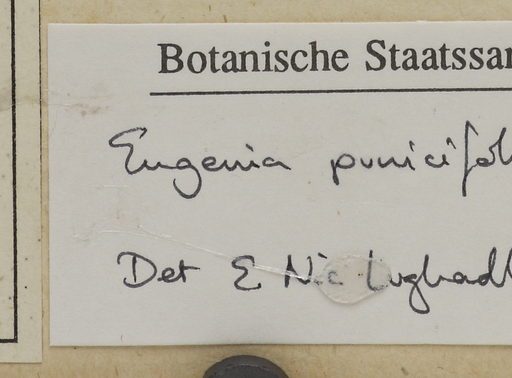 Botanische Staatssar
Eugenia punicifol
Det E Nic Lughadh